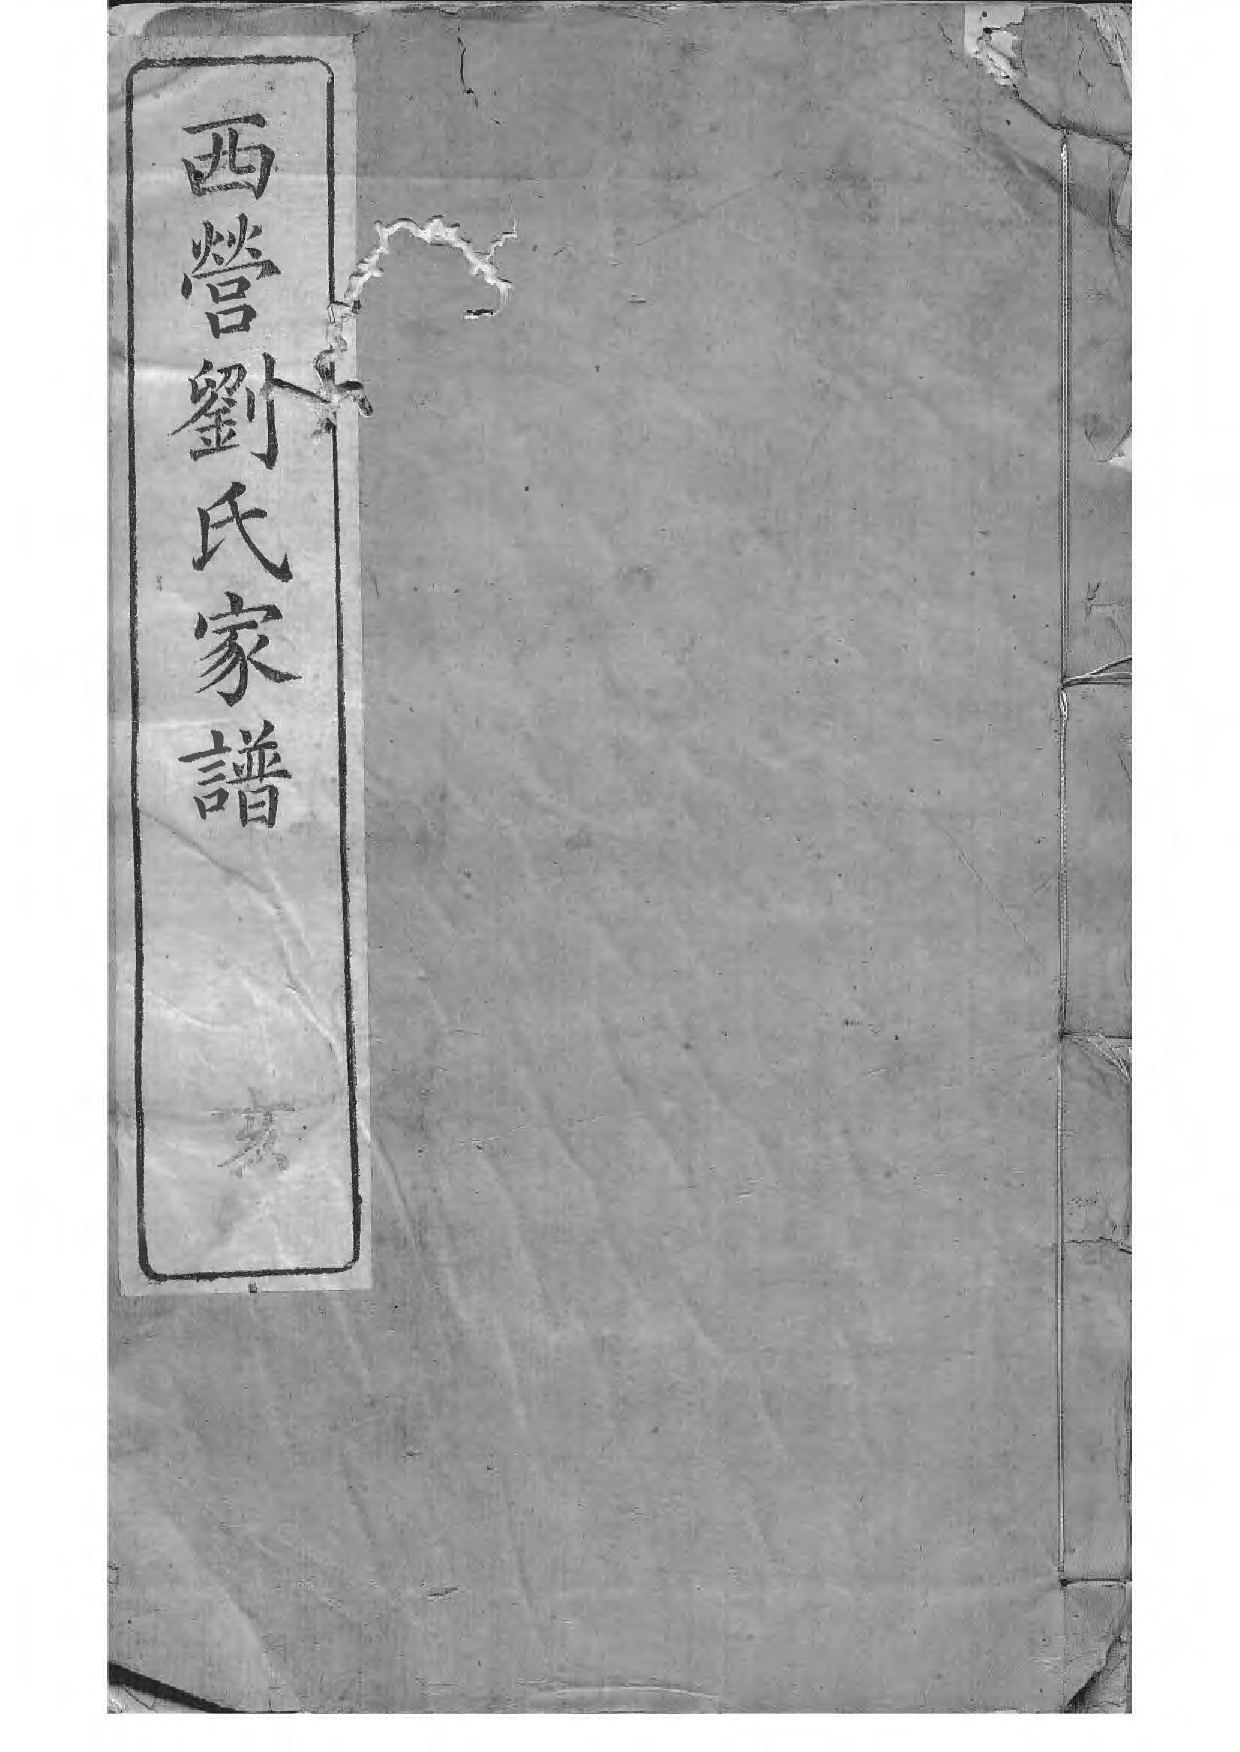 西營劉氏家譜